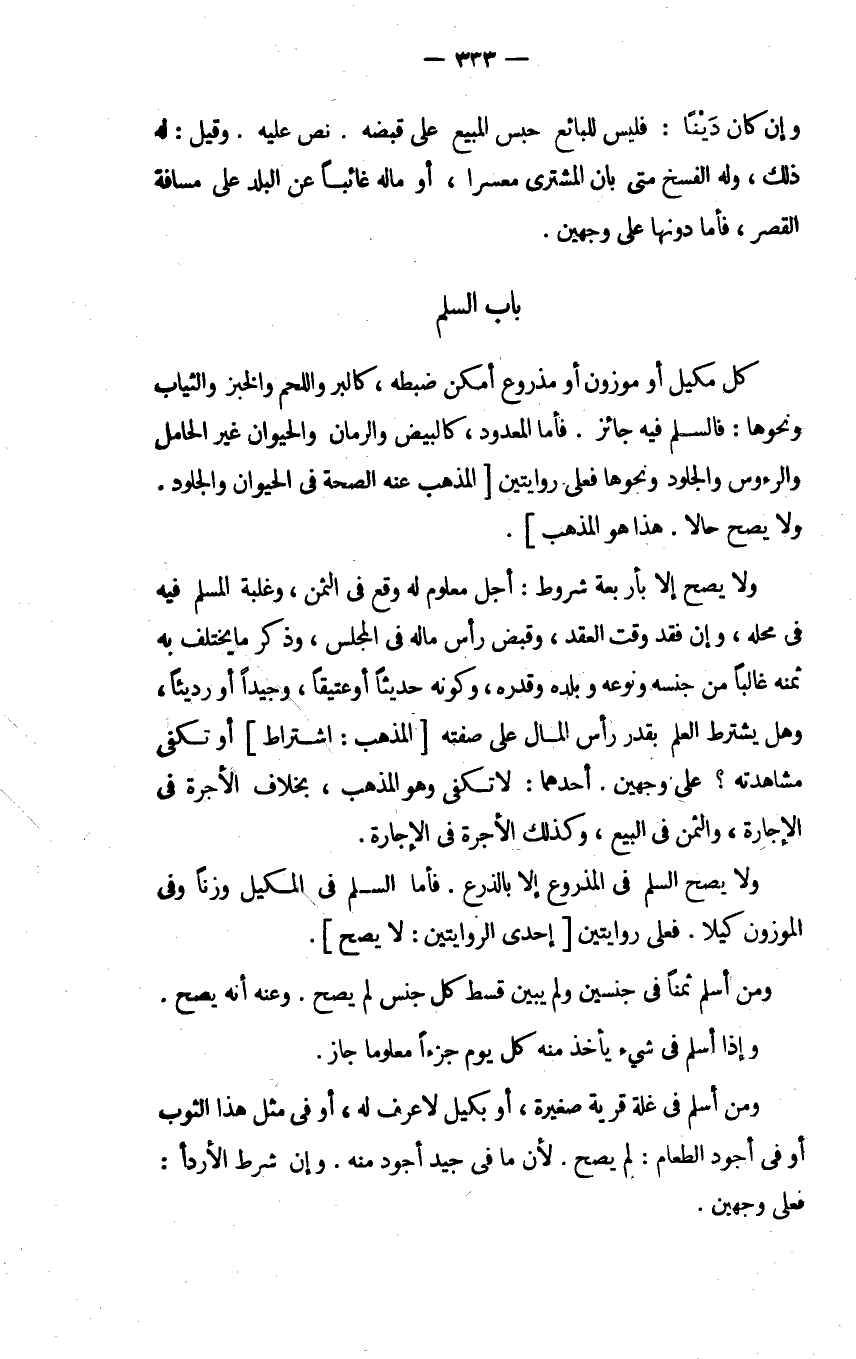 — ٣٣٣ —
وإن كان دَيْنًا : فليس للبائع حبس المبيع على قبضه . نص عليه . وقيل : له
ذلك ، وله الفسخ متى بان المشترى معسرا ، أو ماله غائبــاً عن البلد على مسافة
القصر ، فأما دونها على وجهين .
باب السلم
كل مكيل أو موزون أو مذروع أمكن ضبطه ، كالبر واللحم والخبز والثياب
ونحوها : فالســلم فيه جائز . فأما المعدود ، كالبيض والرمان والحيوان غير الحامل
والرءوس والجلود ونحوها فعلى روايتين [ المذهب عنه الصحة فى الحيوان والجلود .
ولا يصح حالا . هذا هو المذهب ] .
ولا يصح إلا بأربعة شروط : أجل معلوم له وقع فى الثمن ، وغلبة المسلم فيه
فى محله ، وإن فقد وقت العقد ، وقبض رأس ماله فى المجلس ، وذكر مايختلف به
ثمنه غالباً من جنسه ونوعه وبلده وقدره ، وكونه حديثاً أوعتيقاً ، وجيداً أو رديئاً ،
وهل يشترط العلم بقدر رأس المـال على صفته [ المذهب : اشـتراط ] أو تـكفى
مشاهدته ؟ على وجهين . أحدهما : لاتـكفى وهو المذهب ، بخلاف الأجرة فى
الإجارة ، والثمن فى البيع ، وكذلك الأجرة فى الإجارة .
ولا يصح السلم فى المذروع إلا بالذرع . فأما السـلم فى المـكيل وزناً وفى
الموزون كيلا . فعلى روايتين [ إحدى الروايتين : لا يصح ] .
ومن أسلم ثمناً فى جنسين ولم يبين قسط كل جنس لم يصح . وعنه أنه يصح .
وإذا أسلم فى شيء يأخذ منه كل يوم جزءاً معلوما جاز .
ومن أسلم فى غلة قرية صغيرة ، أو بكيل لاعرف له ، أو فى مثل هذا الثوب
أو فى أجود الطعام : لم يصح . لأن ما فى جيد أجود منه . وإن شرط الأردأ :
فعلى وجهين .